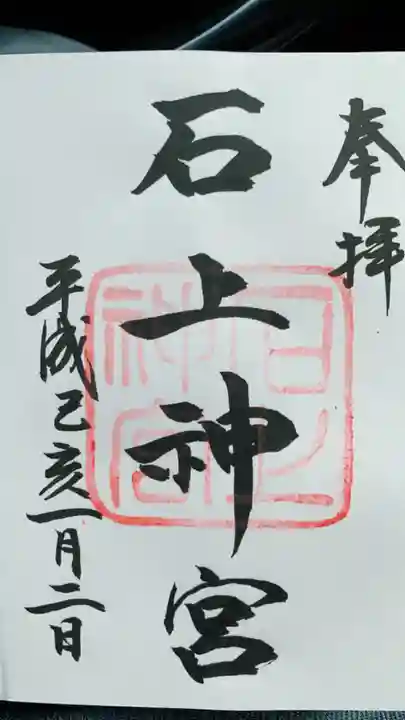 奉拝
石上神宮
平成己亥一月二日
石上
神宮